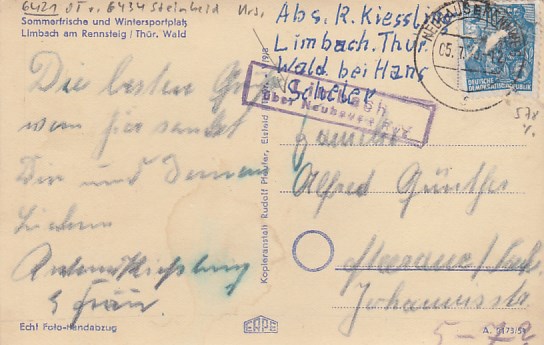 6421 OT v. 6434 Steinheid
Sommerfrische und Wintersportplatz
Limbach am Rennsteig / Thür. Wald
Abs. R. Kiessling
Limbach. Thür.
Wald. bei Hans
Scheler
Limbach
über Neuhaus
05.7.
DEUTSCHE
DEMOKRATISCHE REPUBLIK
Die besten Grüße
von hier sendet
Dir und Deinen
Lieben
Familie
Alfred Günther
Meerane/Sachs.
Johannisstr.
5-72
Kopieranstalt Rudolf Pfeufer, Eisfeld
Echt Foto-Handabzug
A. 9173/51